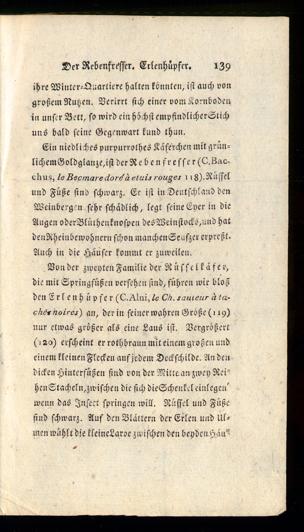 Der Rebenfresser. Erlenhüpfer. 139
ihre Winter-Quartiere halten könnten, ist auch von
großem Nutzen. Verirrt sich einer vom Kornboden
in unser Bett, so wird ein höchst empfindlicher Stich
uns bald seine Gegenwart kund thun.
Ein niedliches purpurrothes Käferchen mit grün-
lichem Goldglanze, ist der Rebenfresser (C. Bac-
chus, le Becmare doré à etuis rouges 118). Rüssel
und Füße sind schwarz. Er ist in Deutschland den
Weinbergen sehr schädlich, legt seine Eyer in die
Augen oder Blüthenknospen des Weinstocks, und hat
den Rheinbewohnern schon manchen Seufzer erpreßt.
Auch in die Häuser kommt er zuweilen.
Von der zweyten Familie der Rüsselkäfer,
die mit Springfüßen versehen sind, führen wir bloß
den Erlenhüpfer (C. Alni, le Ch. sauteur à ta-
ches noires) an, der in seiner wahren Größe (119)
nur etwas größer als eine Laus ist. Vergrößert
(120) erscheint er rothbraun mit einem großen und
einem kleinen Flecken auf jedem Deckschilde. An den
dicken Hinterfüßen sind von der Mitte an zwey Rei-
hen Stacheln, zwischen die sich die Schenkel einlegen
wenn das Insect springen will. Rüssel und Füße
sind schwarz. Auf den Blättern der Erlen und Ul-
men wählt die kleine Larve zwischen den beyden Häu-